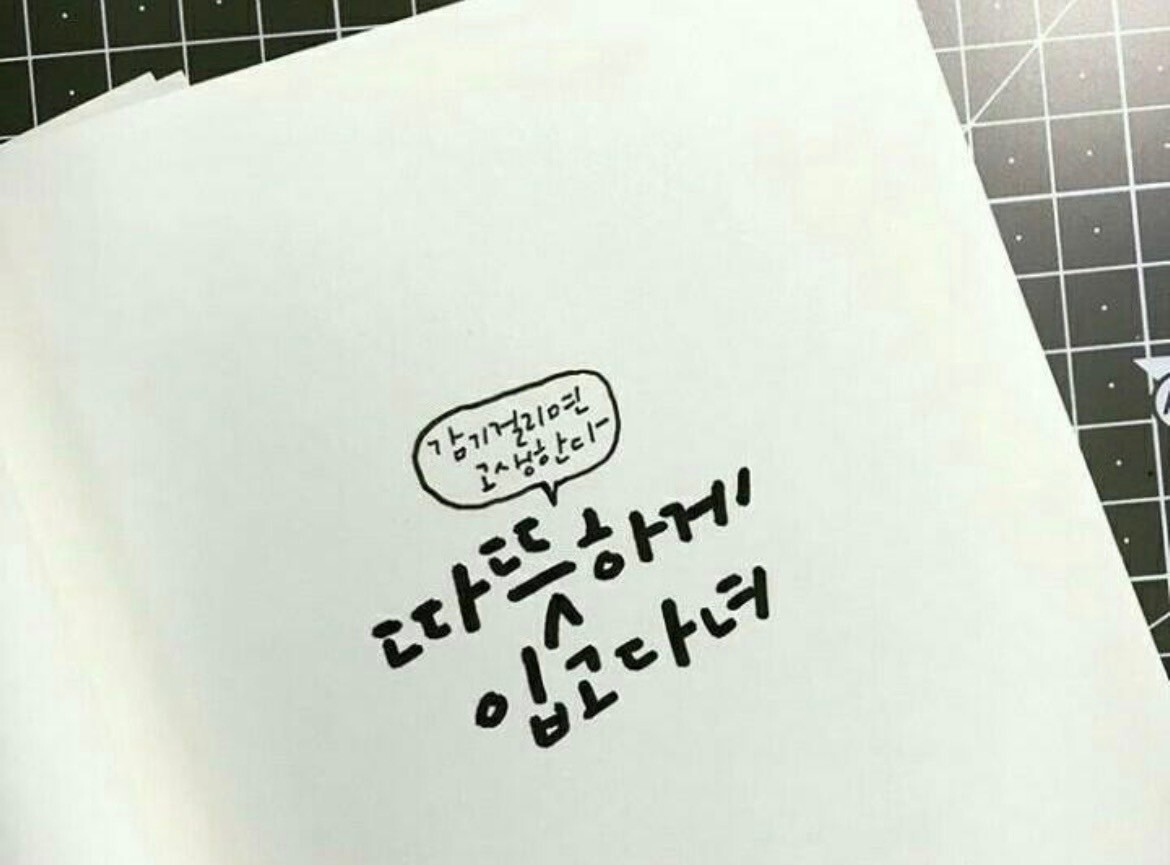 감기걸리면
고생한다-
따뜻하게
입고다녀